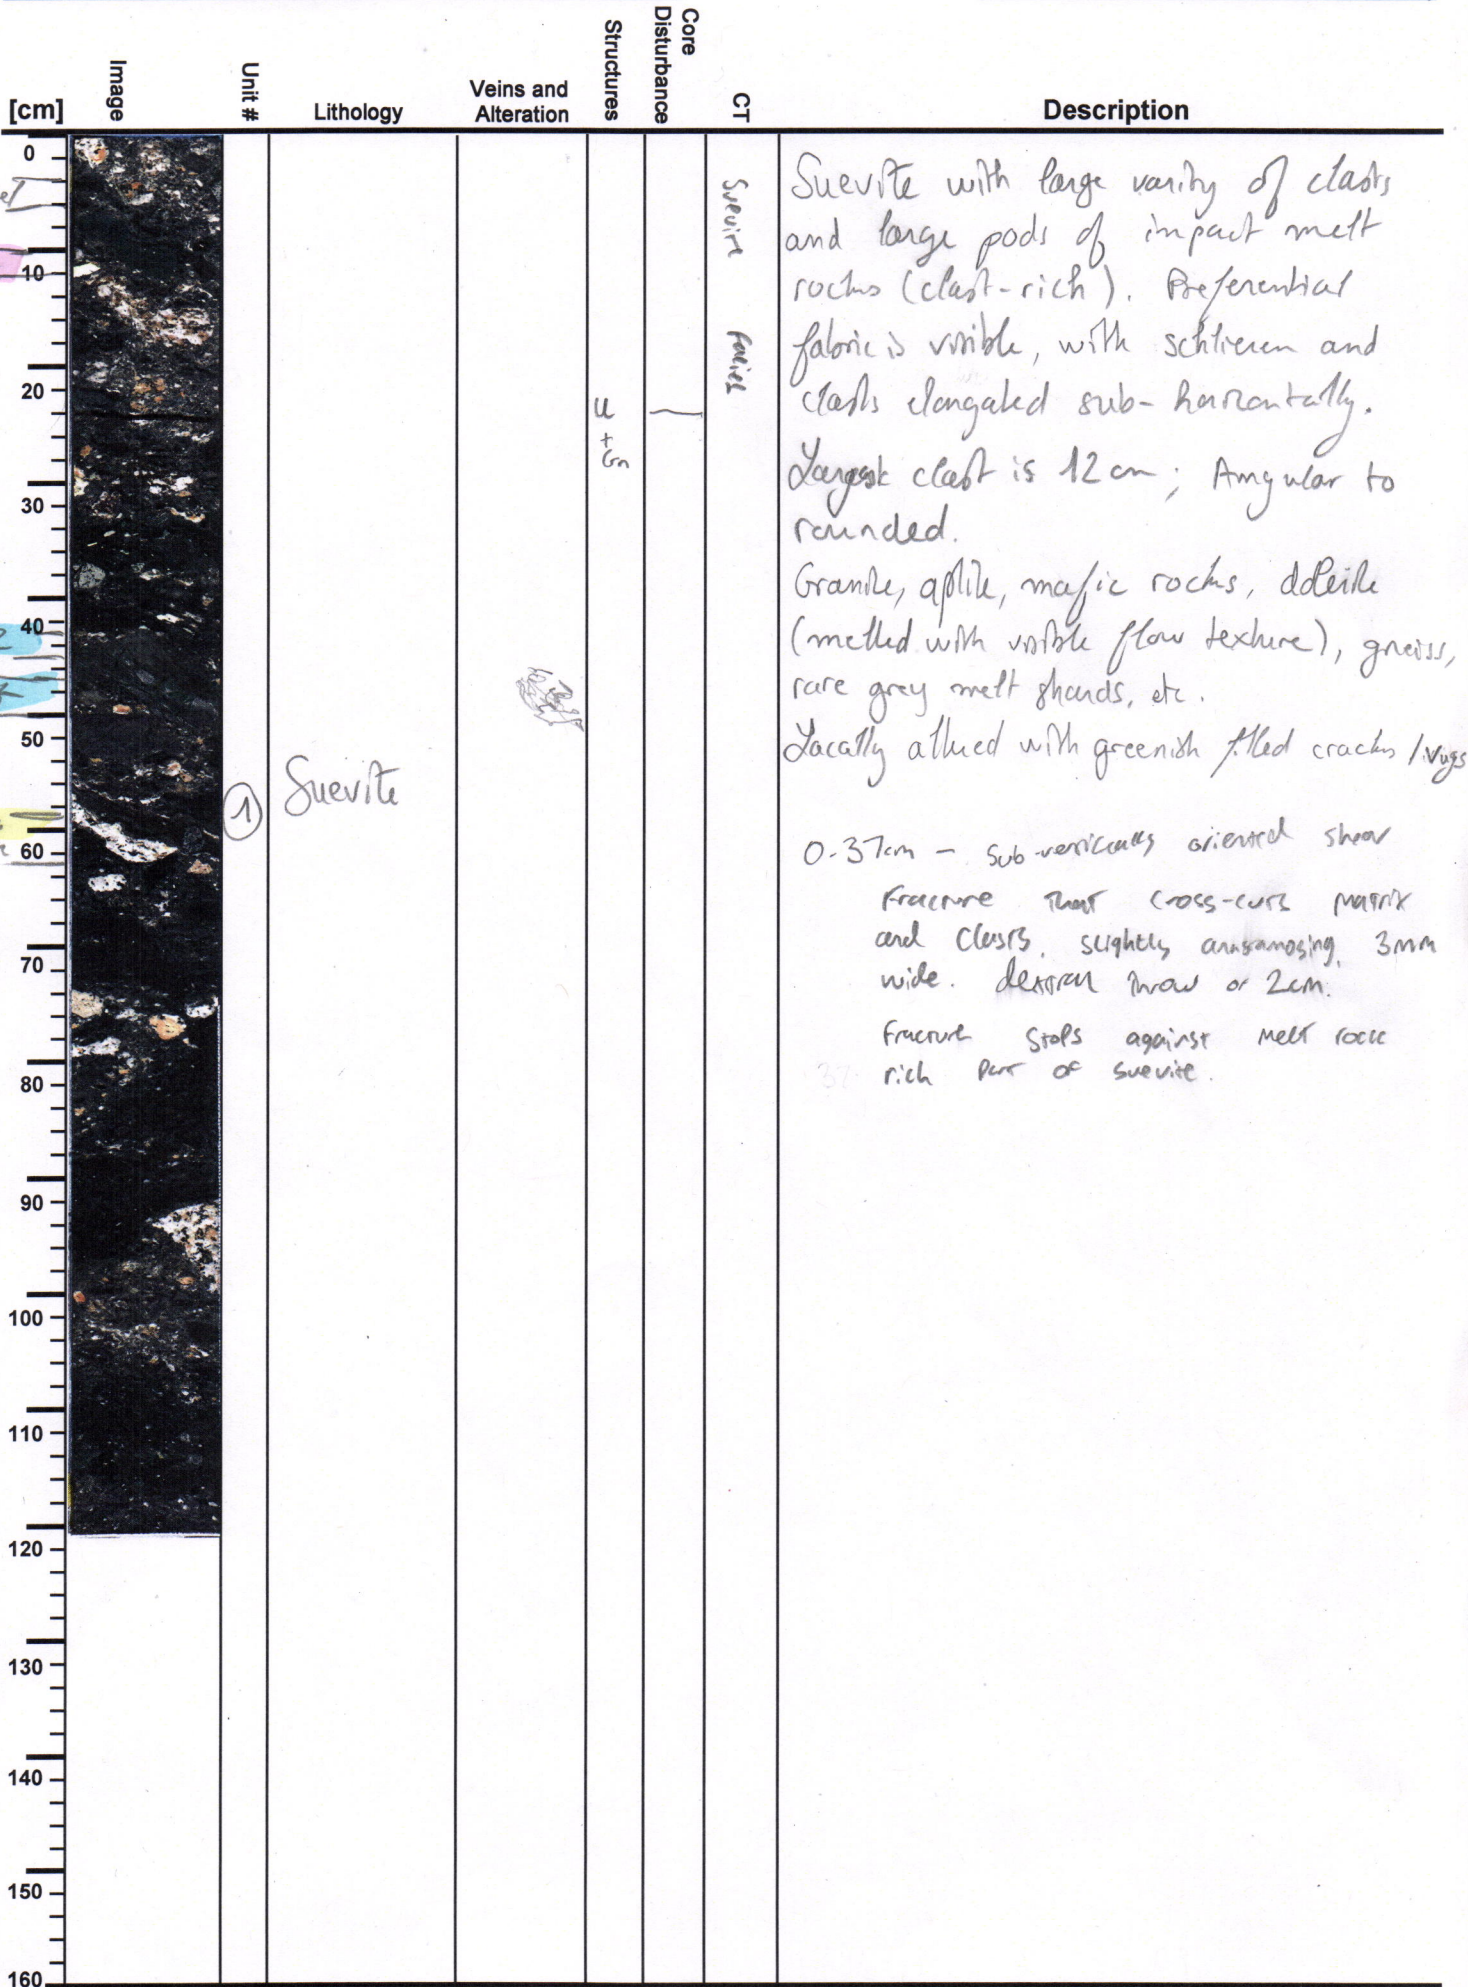 [cm]
Image
Unit #
Lithology
Veins and
Alteration
Structures
Core
Disturbance
CT
Description
0
10
20
30
40
50
60
70
80
90
100
110
120
130
140
150
160
1
Suevite
U
+
Gn
Suevite facies
Suevite with large varity of clasts
and large pods of impact melt
rocks (clast-rich). Preferential
fabric is visible, with schlieren and
clasts elongated sub-horizontally.
Largest clast is 12 cm; Angular to
rounded.
Granite, aplite, mafic rocks, dolerite
(melted with visible flow texture), gneiss,
rare grey melt shards, etc.
Locally altered with greenish filled cracks / vugs
0-37cm - Sub-vertically oriented shear
Fracture that cross-cuts matrix
and clasts, slightly anastamosing, 3mm
wide. dextral throw of 2cm.
Fracture stops against melt rock
rich part of suevite.
37